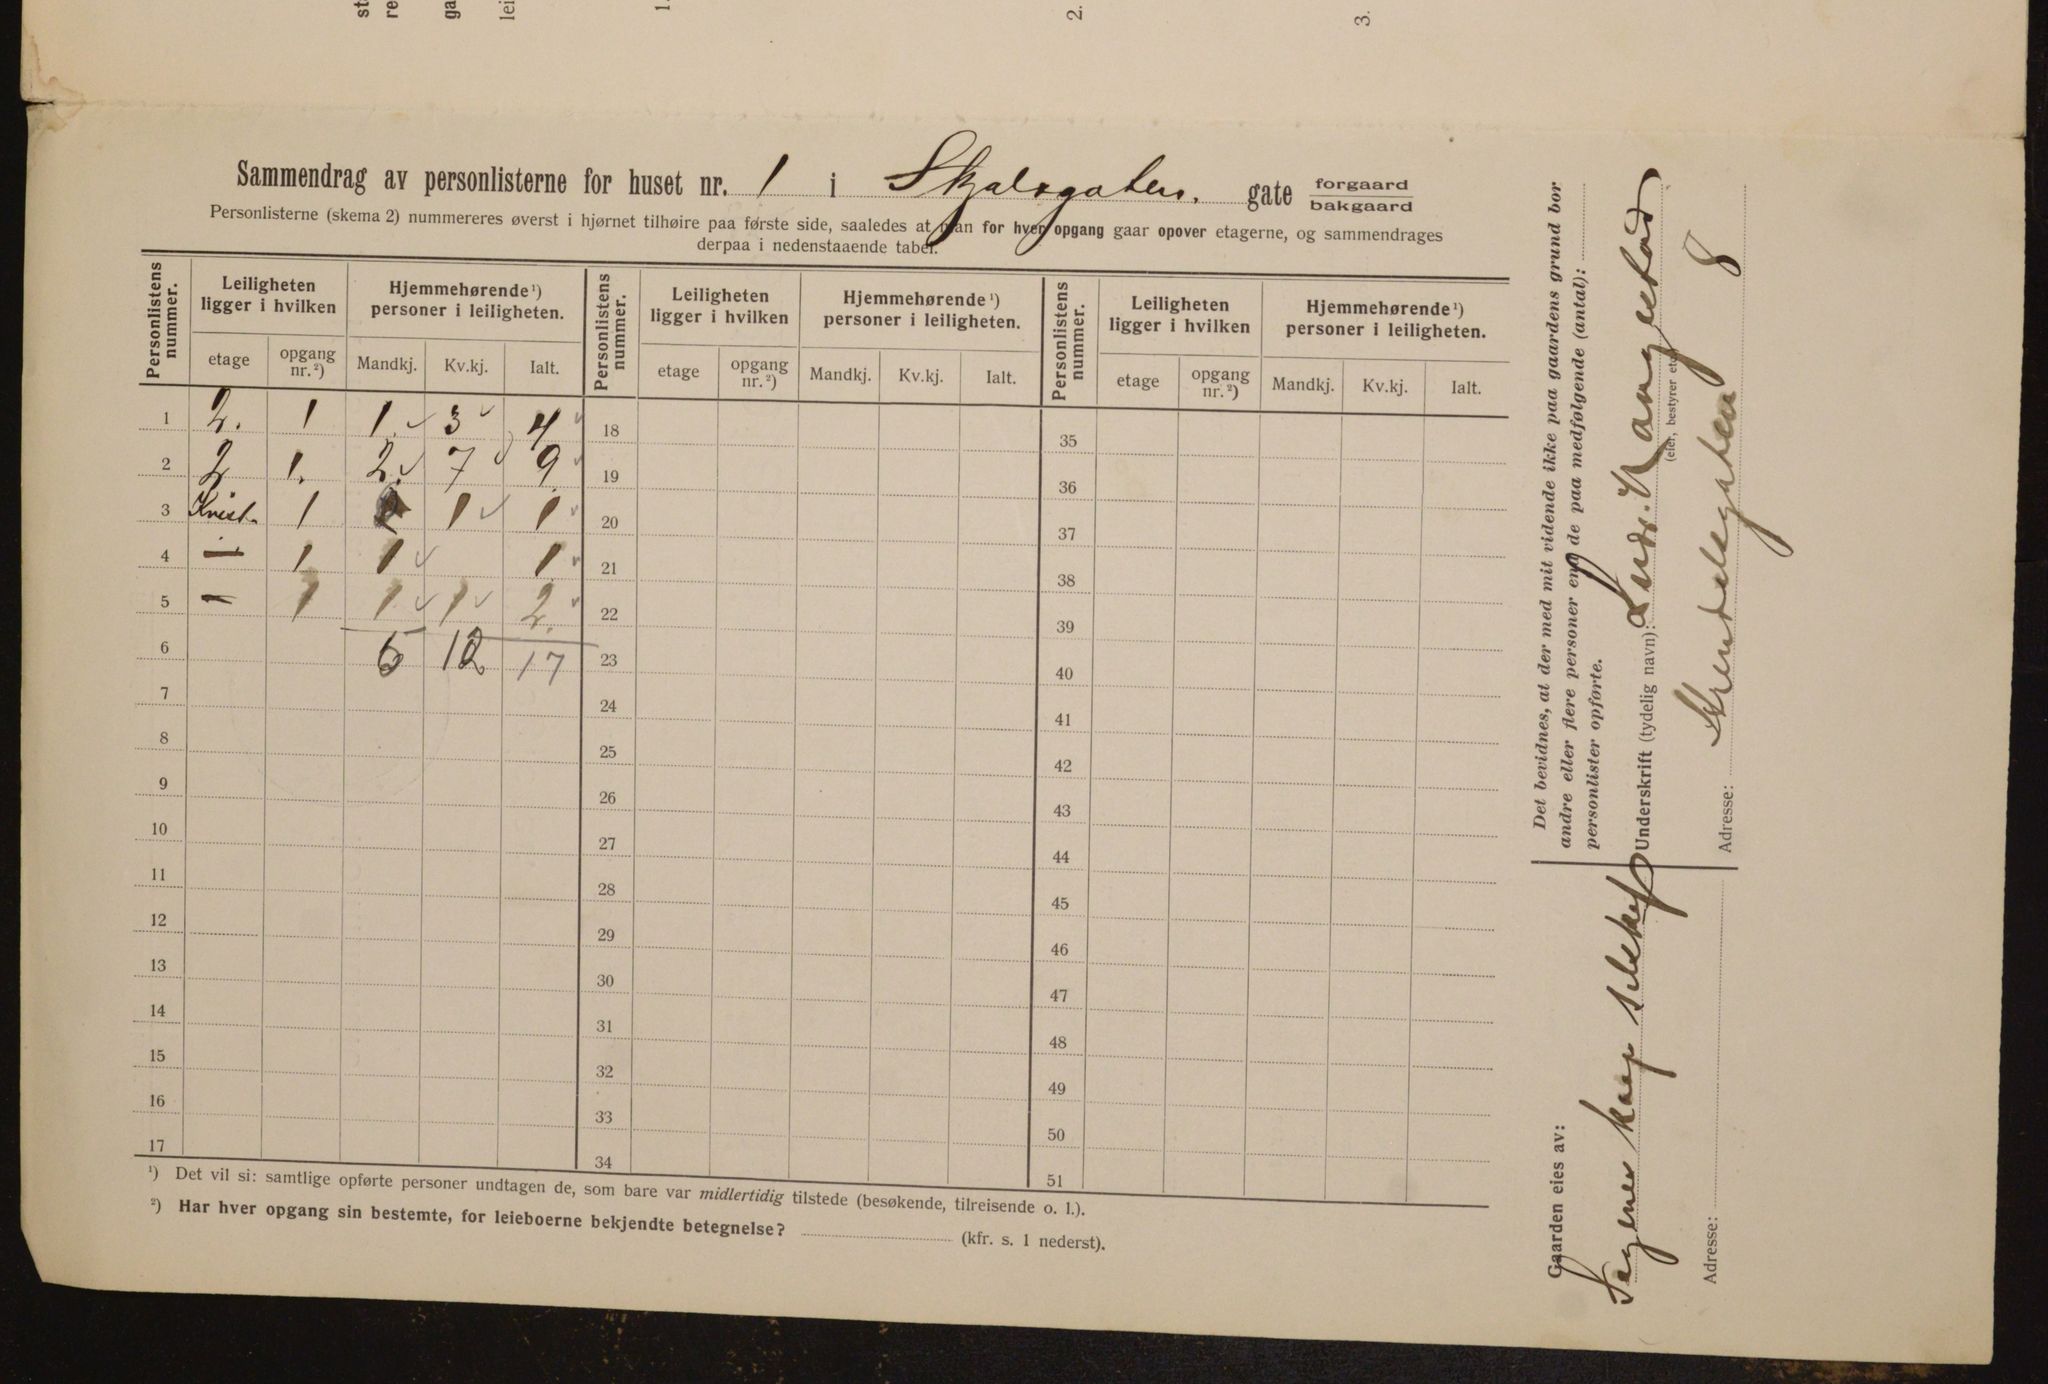 1.
2.
3.
Sammendrag av personlisterne for huset nr. 1 i Skalsgaten. gate forgaard
bakgaard
Personlisterne (skema 2) nummereres øverst i hjørnet tilhøire paa første side, saaledes at man for hver opgang gaar opover etagerne, og sammendrages
derpaa i nedenstaaende tabel.
Personlistens nummer. Leiligheten ligger i hvilken Hjemmehørende ¹) personer i leiligheten. Personlistens nummer. Leiligheten ligger i hvilken Hjemmehørende ¹) personer i leiligheten. Personlistens nummer. Leiligheten ligger i hvilken Hjemmehørende ¹) personer i leiligheten.
etage opgang nr. ²) Mandkj. Kv.kj. Ialt. etage opgang nr. ²) Mandkj. Kv.kj. Ialt. etage opgang nr. ²) Mandkj. Kv.kj. Ialt.
1 2. 1 1. ✓ 3 ✓ 4 ✓ 18 35
2 2 1. 2. ✓ 7 ✓ 9 ✓ 19 36
3 Kvist. 1 1 ✓ 1 ✓ 20 37
4 — 1 1 ✓ 1 ✓ 21 38
5 — 1 1 ✓ 1 ✓ 2. ✓ 22 39
6 5 12 17 23 40
7 24 41
8 25 42
9 26 43
10 27 44
11 28 45
12 29 46
13 30 47
14 31 48
15 32 49
16 33 50
17 34 51
¹) Det vil si: samtlige opførte personer undtagen de, som bare var midlertidig tilstede (besøkende, tilreisende o. l.).
²) Har hver opgang sin bestemte, for leieboerne bekjendte betegnelse? (kfr. s. 1 nederst).
Det bevidnes, at der med mit vidende ikke paa gaardens grund bor
andre eller flere personer end de paa medfølgende (antal):
personlister opførte.
Underskrift (tydelig navn):
(eier, bestyrer etc.)
Adresse: 8
Gaarden eies av:
Adresse: